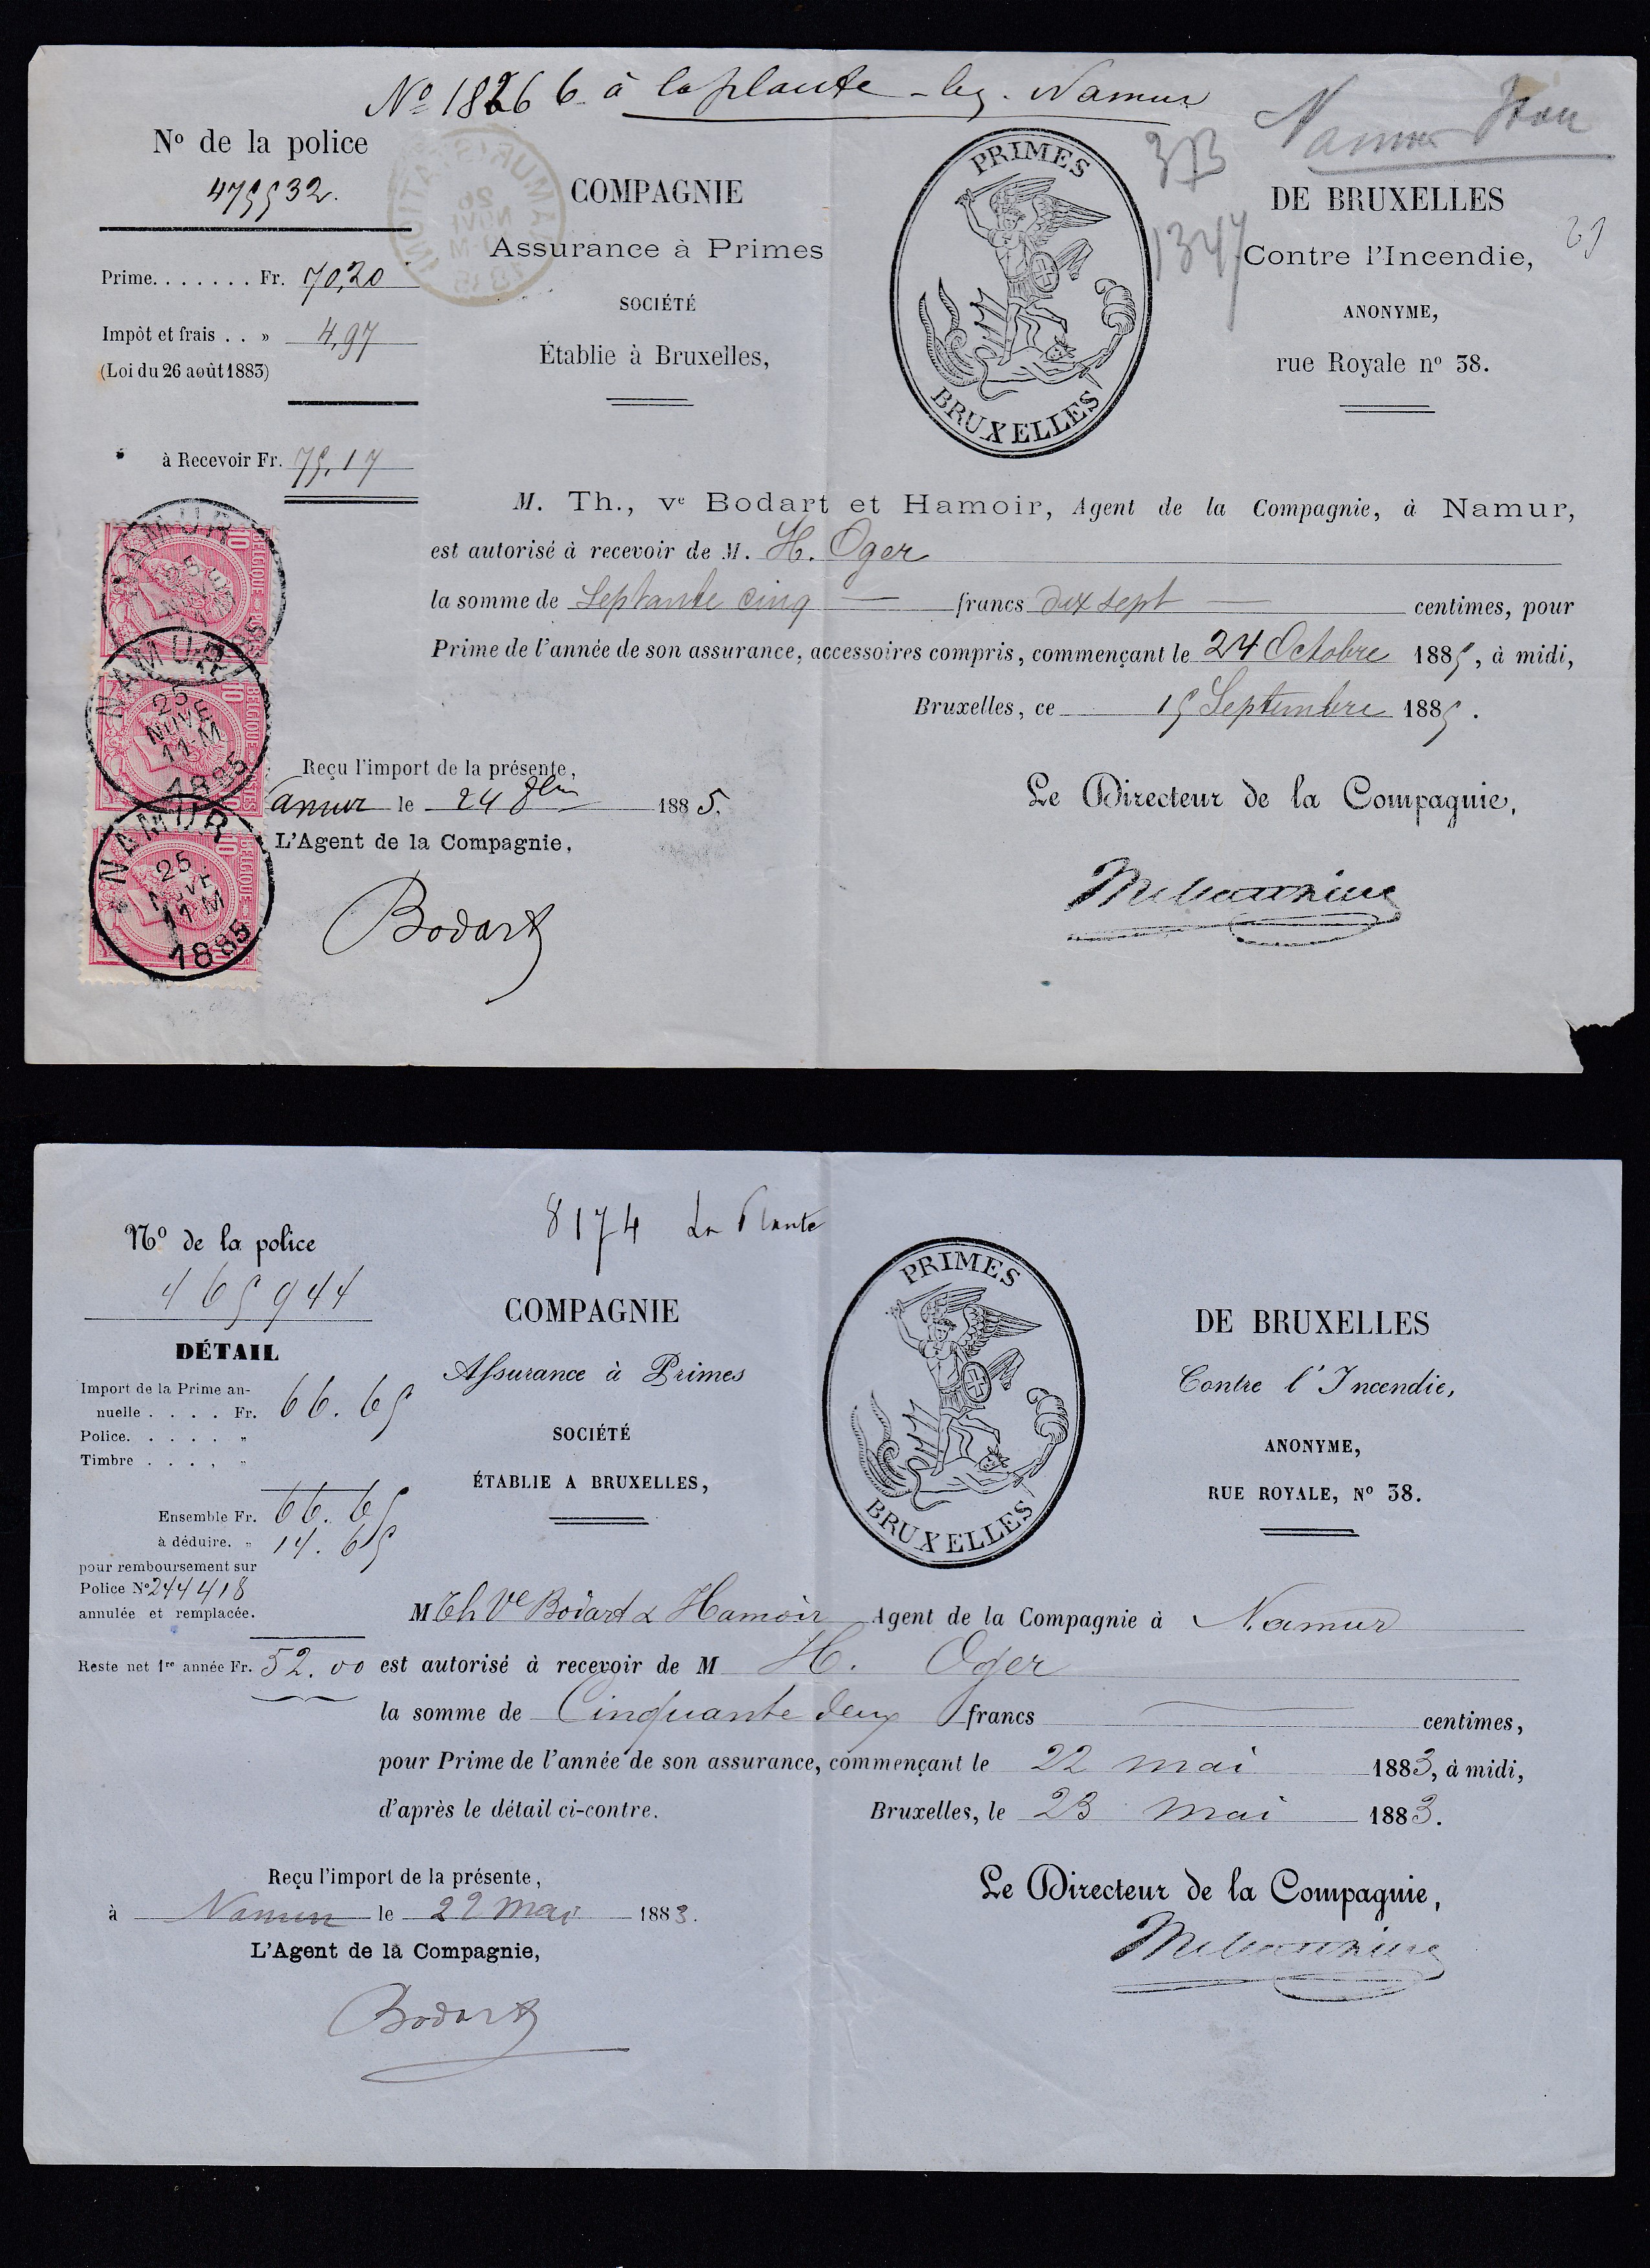 Nº 18266 à la plante - lez - Namur
Namur
1347
Nº de la police
475532.
Prime. . . . . . . Fr. 70,20
Impôt et frais . . » 4,97
(Loi du 26 août 1883)
à Recevoir Fr. 75,17
COMPAGNIE
Assurance à Primes
SOCIÉTÉ
Établie à Bruxelles,
PRIMES
BRUXELLES
DE BRUXELLES
Contre l'Incendie,
ANONYME,
rue Royale nº 38.
M. Th., ve Bodart et Hamoir, Agent de la Compagnie, à Namur,
est autorisé à recevoir de M. H. Oger
la somme de Septante cinq — francs dix sept — centimes, pour
Prime de l'année de son assurance, accessoires compris, commençant le 24 Octobre 1885, à midi,
Bruxelles, ce 15 Septembre 1885.
Reçu l'import de la présente,
amur le 24 1885.
L'Agent de la Compagnie,
Bodart
Le Directeur de la Compagnie,
BELGIQUE POSTES
10
NAMUR
25 NOVE 11-M
1885
BELGIQUE POSTES
10
NAMUR
25
NOVE
11-M
1885
BELGIQUE
10
NAMUR
25
NOVE
11-M
1885
8174 La Plante
Nº de la police
465944
DÉTAIL
Import de la Prime an-
nuelle . . . . Fr. 66.65
Police. . . . . . „
Timbre . . . . „
Ensemble Fr. 66.65
à déduire. „ 14.65
pour remboursement sur
Police Nº 244418
annulée et remplacée.
Reste net 1re année Fr. 52.00
COMPAGNIE
Assurance à Primes
SOCIÉTÉ
ÉTABLIE A BRUXELLES,
PRIMES
BRUXELLES
DE BRUXELLES
Contre l'Incendie,
ANONYME,
RUE ROYALE, Nº 38.
M Th Ve Bodart & Hamoir Agent de la Compagnie à Namur
est autorisé à recevoir de M H. Oger
la somme de Cinquante deux francs — centimes,
pour Prime de l'année de son assurance, commençant le 22 mai 1883, à midi,
d'après le détail ci-contre. Bruxelles, le 23 mai 1883.
Reçu l'import de la présente,
à Namur le 22 mai 1883.
L'Agent de la Compagnie,
Bodart
Le Directeur de la Compagnie,